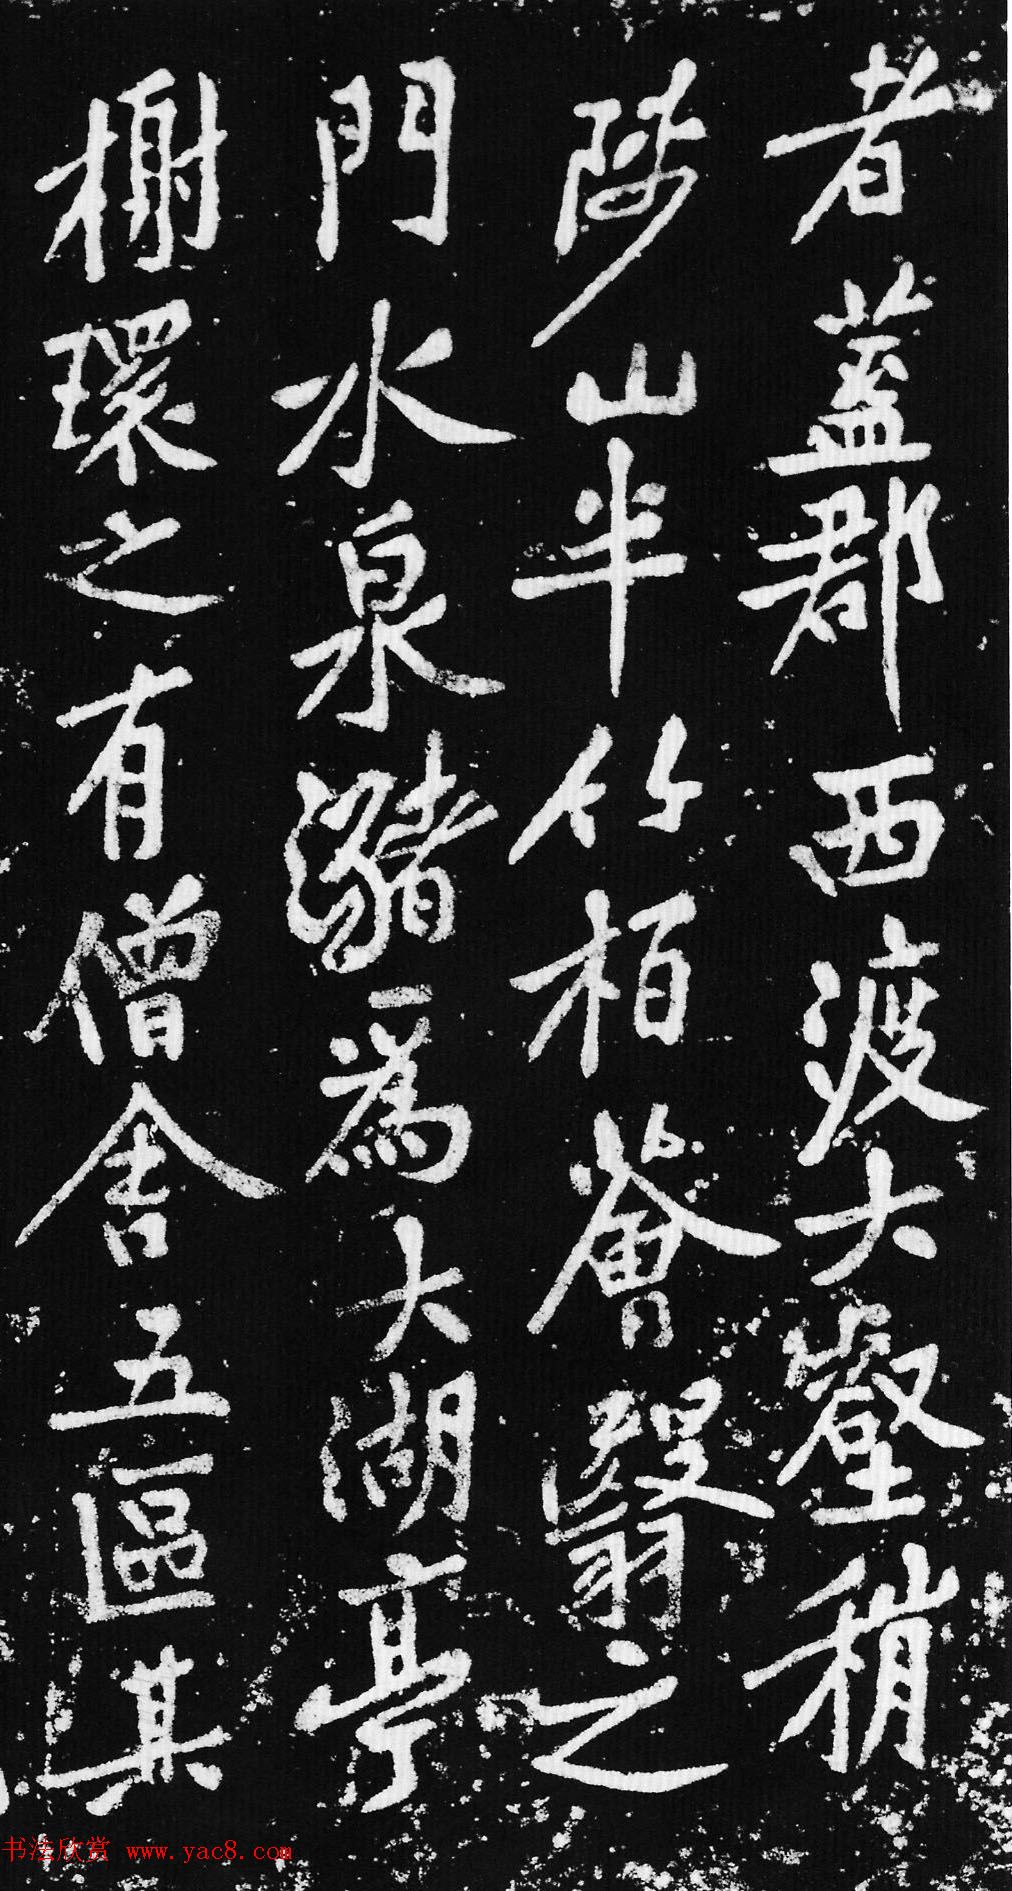 者蓋郡西渡大壑稍
陟山半竹栢薈翳之
門水泉瀦為大湖亭
榭環之有僧舍五區其
书法欣赏 www.yac8.com